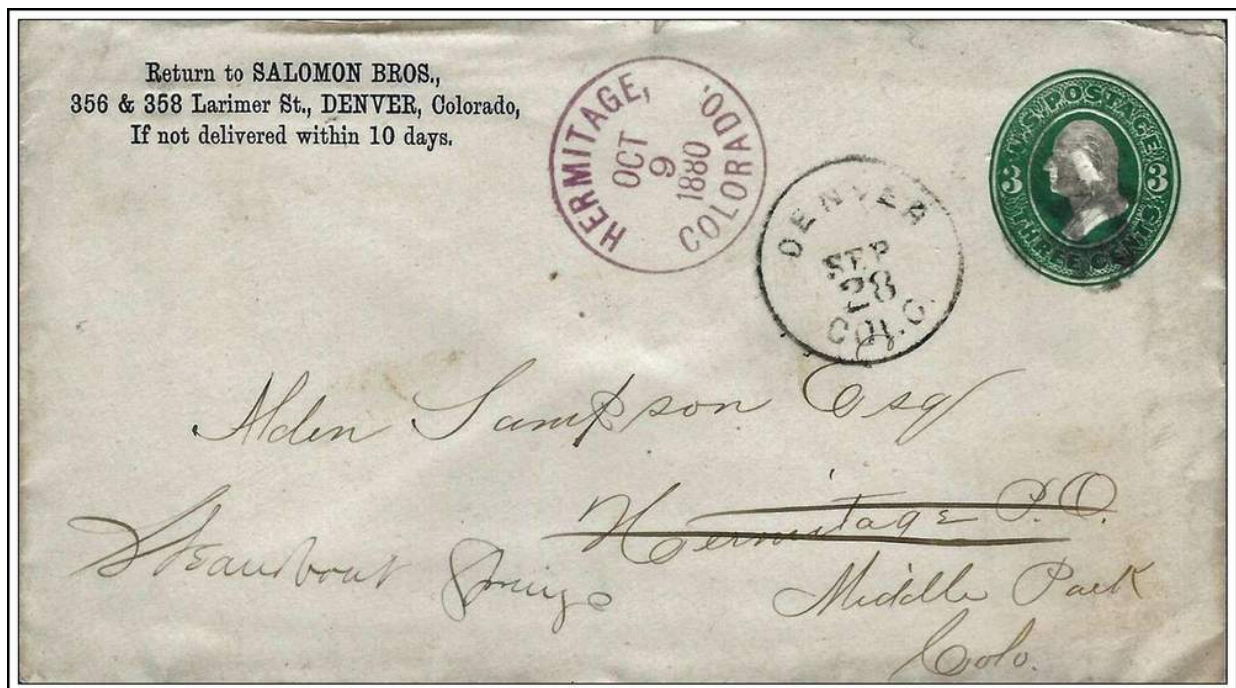 Return to SALOMON BROS.,
356 & 358 Larimer St., DENVER, Colorado,
If not delivered within 10 days.
HERMITAGE,
OCT
9
1880
COLORADO.
DENVER
SEP
28
COLO.
U.S. POSTAGE
3 3
THREE CENTS
Alden Sampson Esq
Hermitage P.O.
Steamboat Springs
Middle Park
Colo.